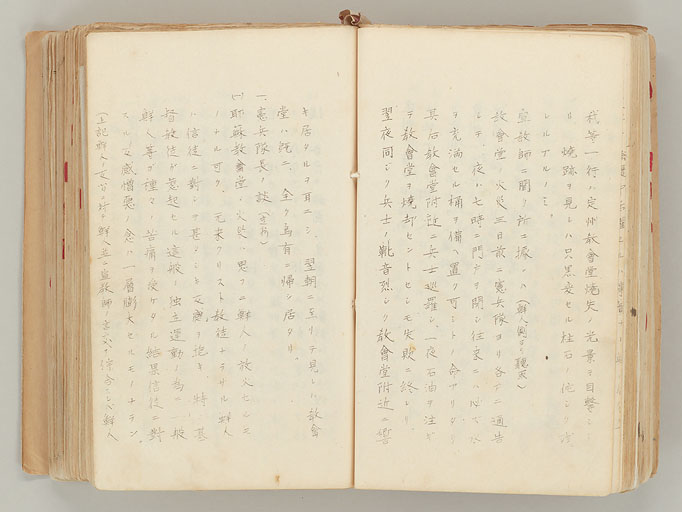 我等一行ハ定州教會堂燒失ノ光景ヲ目撃シ
燒跡ヲ見レハ只黒安セル柱石ノ他シク
レルアルノミ。
宣教師ニ聞ク所ニ據レハ（鮮人側ヨリ聽取）
教會堂ノ火災三日前ニ憲兵隊ヨリ各戸ニ通告
シテ、夜ハ七時ニ門戸ヲ閉シ往来
ヲ充滿セル桶ヲ備ヘ置ク可シトノ命アリタリ
其后教會堂附近ニ兵士巡羅シ、一夜石油ヲ注ギ
テ教會堂ヲ燒却セントセシモ失敗ニ終レリ。
翌夜同シク兵士ノ靴音烈シク教會堂附近ニ響
キ居タルヲ耳ニシ、翌朝ニ至リテ見レハ教會
堂ハ既ニ全ク烏有ニ帰シ居タリ。
一、憲兵隊長ノ談
(1)耶蘇教會堂ノ火災ハ思フニ鮮人ノ放火セシモ
ノナル可ク、元来クリスト教徒ナラサル鮮人
ハ信徒ニ對シテ甚シキ反感ヲ抱キ、特ニ基
督教徒ガ蹶起セル這般ノ独立運動ノ為ニ一般
鮮人等ガ種々ノ苦痛ヲ受ケタル結果信徒ニ對
スル反感憎悪ノ念ハ一層膨大セルモノナラン。
鮮人並ニ宣教師ノ言